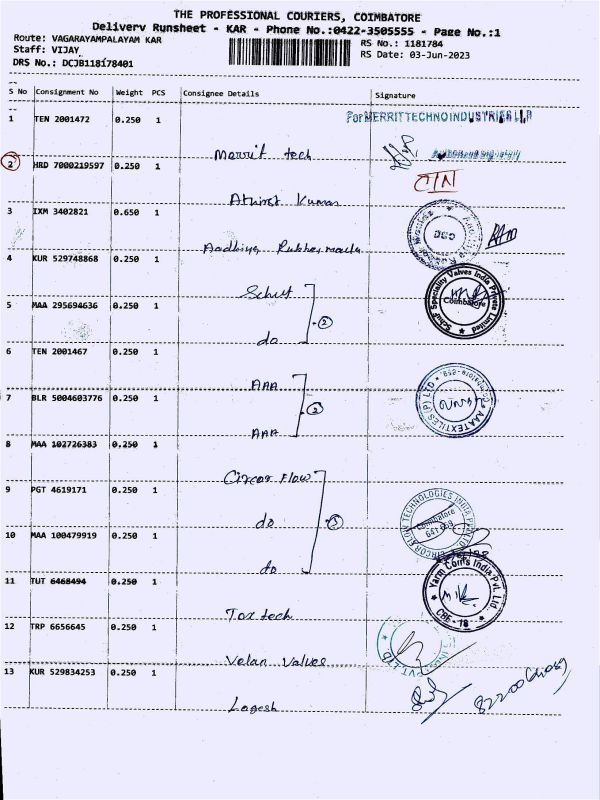 THE PROFESSIONAL COURIERS, COIMBATORE
Delivery Runsheet - KAR - Phone No.:0422-3505555 - Page No.:1
Route: VAGARAYAMPALAYAM KAR
RS No.: 1181784
Staff: VIJAY
RS Date: 03-Jun-2023
DRS No.: DCJB118178401
S No Consignment No Weight PCS Consignee Details Signature
1 TEN 2001472 0.250 1 For MERRIT TECHNO INDUSTRIES LLP
Merrit tech
2 HRD 7000219597 0.250 1
Kumar
3 IXM 3402821 0.650 1
4 KUR 529748868 0.250 1
Schuf
Schuf Speciality Valves India Private Limited
Coimbatore
5 MAA 295694636 0.250 1
do (2)
6 TEN 2001467 0.250 1
AAA
AAA TEXTILES (P) LTD
7 BLR 5004603776 0.250 1
AAA (2)
8 MAA 102726383 0.250 1
Circor Flow
9 PGT 4619171 0.250 1
do (3)
TECHNOLOGIES INDIA PVT. LTD.
Coimbatore
10 MAA 100479919 0.250 1
do
11 TUT 6468494 0.250 1
Yarm Coms India Pvt. Ltd
CBE - 18
Tex tech
12 TRP 6656645 0.250 1
Velan Valves
PVT LTD.
13 KUR 529834253 0.250 1
Logesh